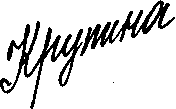 Крупина